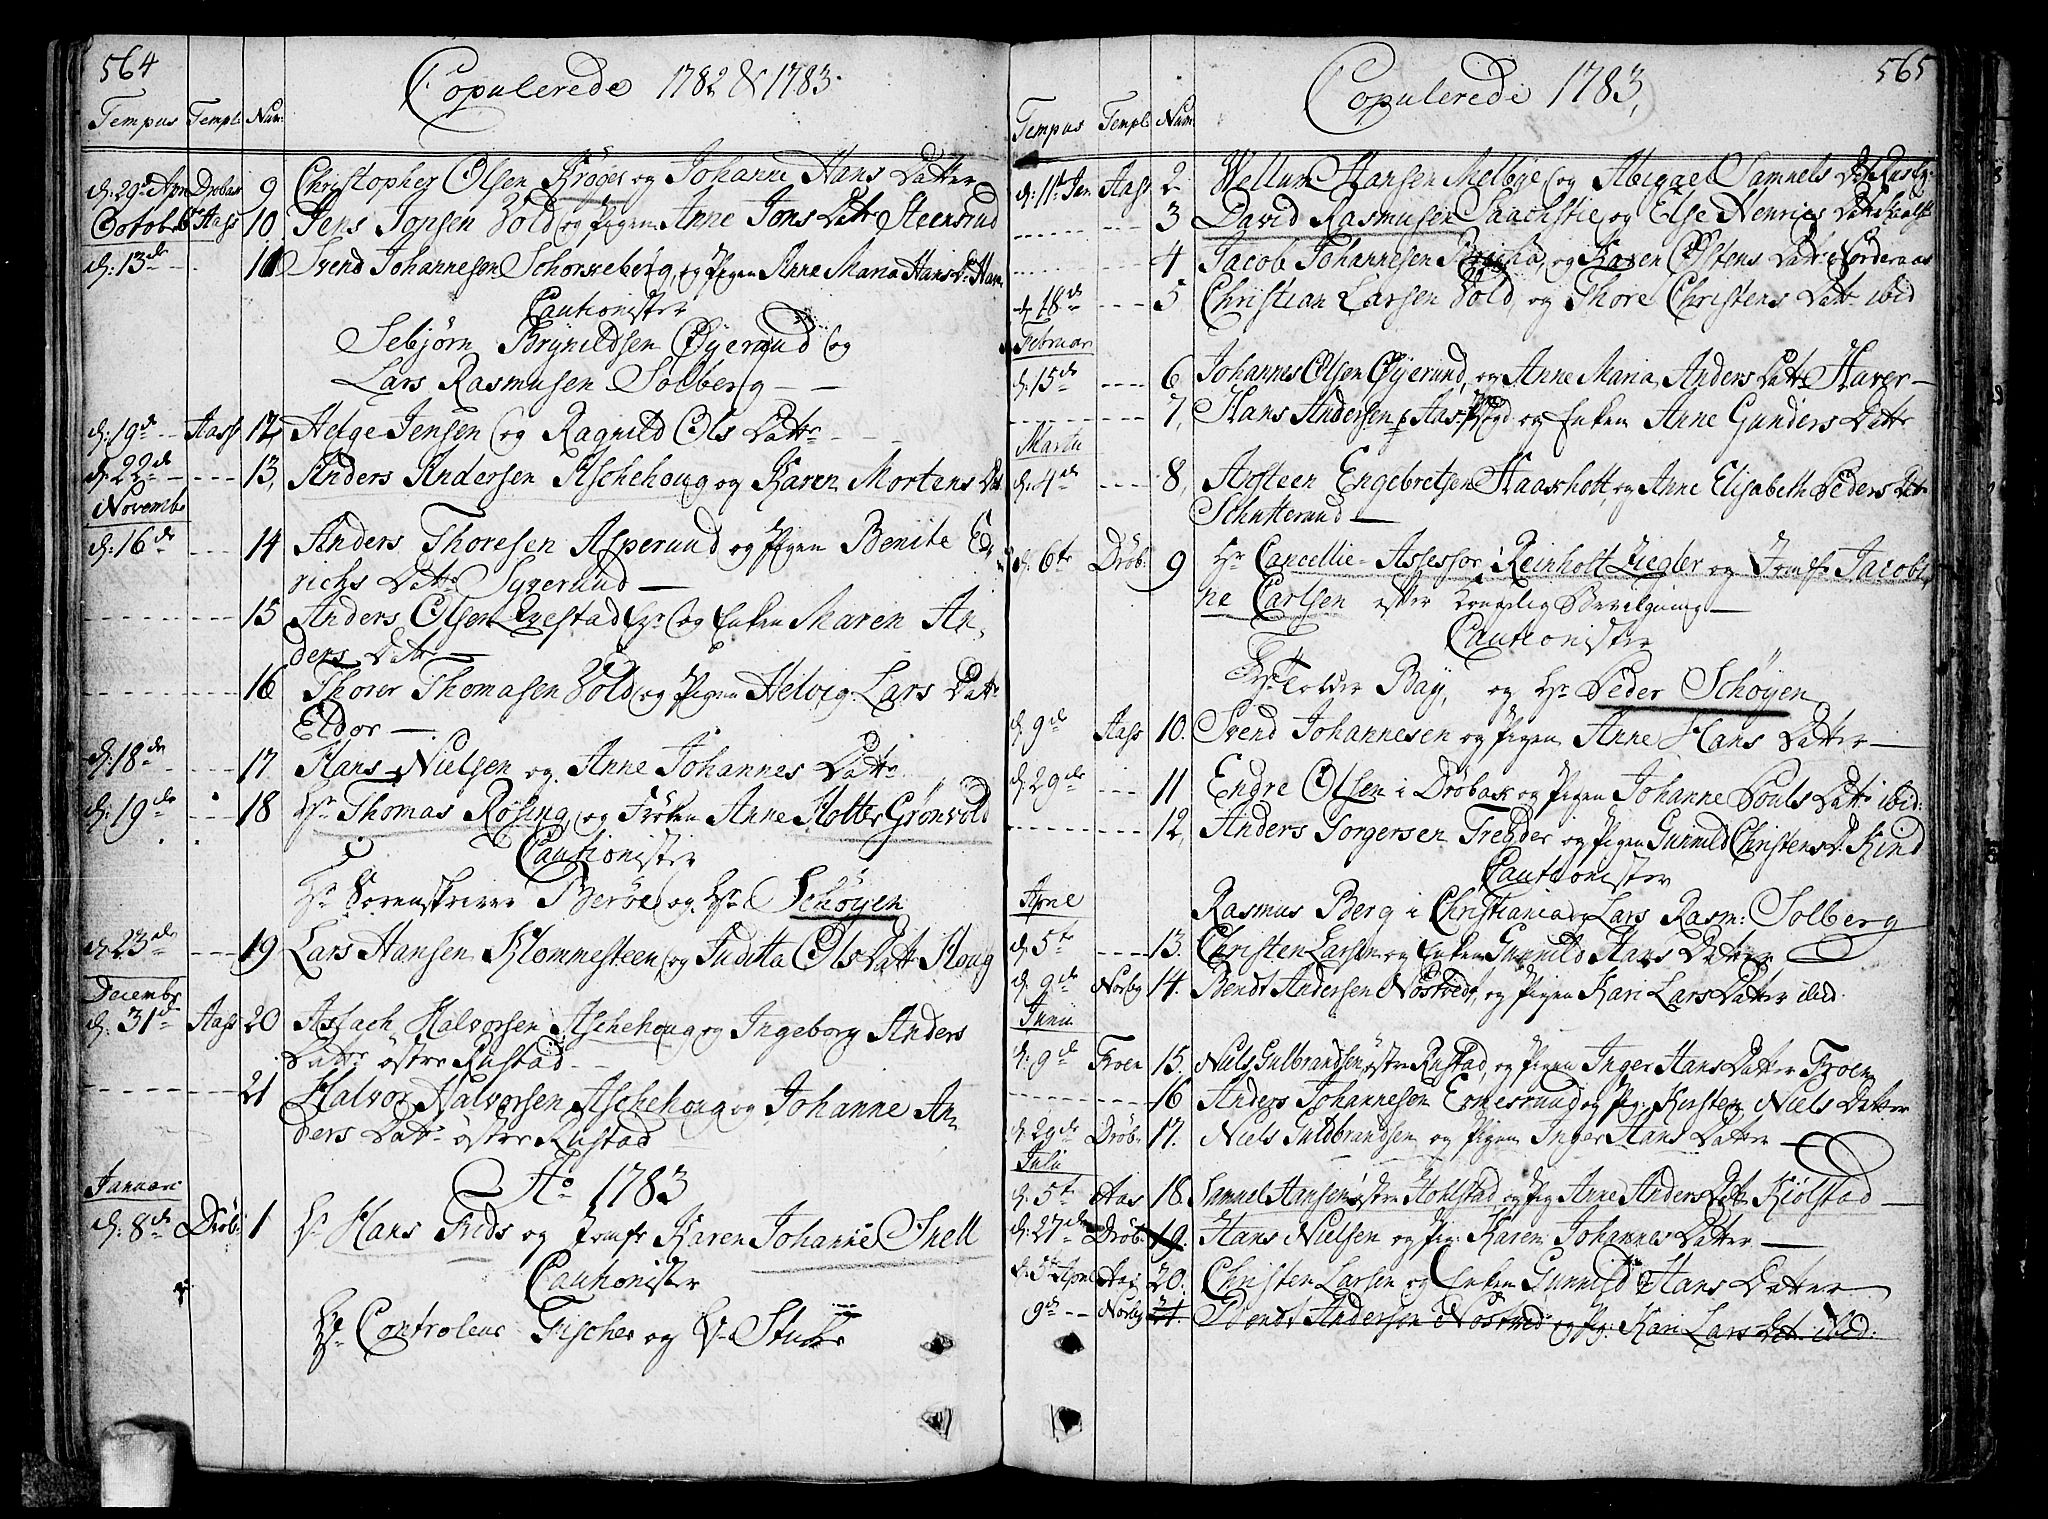 564
Copulerede 1782 & 1783.
Tempus Templ: Num:
d. 29de Apr Drøbac 9 Christopher Olsen Krøger og Johanne Hans Datter
Octobr Aass 10 Jens Jonsen Vold og Pigen Anne Jons Datter Steensrud
d. 13de 11 Svend Johannesen Schorkeberg, og Pigen Anne Maria Hans Dr Haver
Cautionister
Sebjørn Brynildsen Øyerud og
Lars Rasmusen Solberg
d. 19de Aass 12 Helge Jensen og Ragnild Ols Datter
d. 22de 13, Anders Andersen Aschehoug og Karen Mortens Dat
Novembr
d. 16de 14 Anders Thoresen Asperund og Pigen Benite Ed,,
richs Datter Syverund
15 Anders Olsen og Enken Maren An,,
ders Datter
16 Thorer Thomasen Vold og Pigen Helvig Lars Datr
Eldor
d. 18de 17. Hans Nielsen og Anne Johannes Datter
d. 19de 18 Hr Thomas Rosing og Frøken Anne Holter Grønvold
Cautionister
Hr Sorenskriver Berøe og Hr Schøyen
d. 23de 19 Lars Hansen Klommesteen og Juditta Ols Datter Houg
Decembr
d. 31de Aass 20 Aslach Halvorsen Aschehoug og Ingeborg Anders
Datter østre Rustad
21 Halvor Halvorsen Aschehoug og Johanne An,,
ders Datr østre Rustad
Ao 1783
Januari
d. 8de Drøb: 1 Hr Hans Friis og Jomfr Karen Johanne Snell
Cautionister
Hr Controleur Fischer og Hr
565
Copulerede 1783,
Tempus Templ: Num:
d. 11te Jan Aass 2 Wellum Hansen Melbye og Abigael Samuels Dr Rustg:
3 David Rasmusen Saachstie og Else Henrics Datr
4 Jacob Johannesen og Karen Østens Datr Norderaas
d. 18de 5 Christian Larsen Vold, og Thore Christens Datr ibid
Februari
d. 15de 6 Johannes Olsen Øyerund, og Anne Maria Anders Datr Haver
7, Hans Andersen Aas og Enken Anne Gunders Datr
Martii
d. 4de 8, Arsteen Engebretsen Haarkott, og Anne Elisabeth Peders Datr
Schutterud
d. 6te Drøb: 9 Hr Cancellie-Assessor Reinholt Ziegler og Jomfr Jacobi,
ne Carlsen efter kongelig Bevilgning
Cautionister
Hr Tolder Bay, og Hr Peder Schøyen
d. 9de Aass 10. Svend Johannesen og Pigen Anne Hans Datter
d. 29de 11 Endre Olsen i Drøbach og Pigen Johanne Pouls Datr ibid:
12, Anders Torgersen Treyder og Pigen Gunnild Christens Dr Kind
Cautionister
Rasmus Berg i Christiania og Lars Rasm: Solberg
Aprile
d. 5te 13. Christen Larsen og Enken Gunnild Hans Datter
d. 9de Norby 14. Bendt Andersen Nostvedt, og Pigen Kari Lars Datter ibid.
Junii
d. 9de Froen 15. Niels Gulbrandsen østre Rustad, og Pigen Inger Hans Datter Froen
16 Anders Johannesen Ermesrund og Pig: Kirsten Niels Datter
d. 29de Drøb: 17. Niels Guldbrandsen og Pigen Inger Hans Datter
Julii
d. 5te Aas 18. Samuel Hansen østre Hohlstad og Pig: Anne Anders Datr Kiølstad
d. 27de Drøb: 19. Hans Nielsen og Pig: Karen Johannes Datter
d. 5te Apri Aas 20. Christen Larsen og Enken Gunnild Hans Datter
9de Norby 21. Bendt Andersen Nostved og Pig: Kari Lars Dat: ibid: